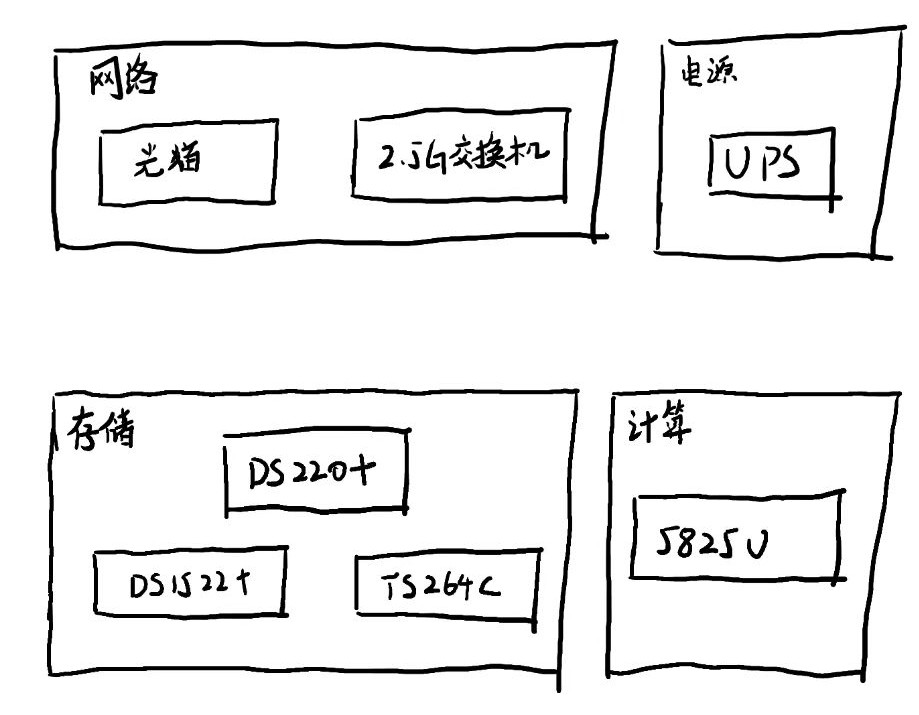 网络
光猫
2.5G交换机
电源
UPS
存储
DS220+
DS1522+
TS264C
计算
5825U